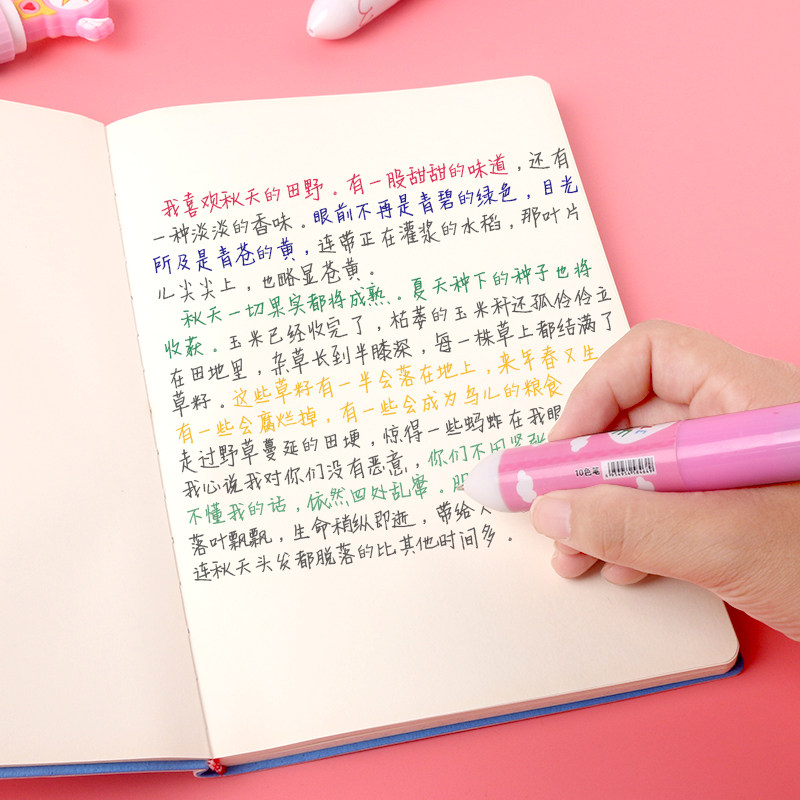 我喜欢秋天的田野。有一股甜甜的味道，还有
一种淡淡的香味。眼前不再是青碧的绿色，目光
所及是青苍的黄，连带正在灌浆的水稻，那叶片
儿尖尖上，也略显苍黄。
秋天一切果实都将成熟。夏天种下的种子也将
收获。玉米已经收完了，枯萎的玉米秆还孤伶伶立
在田地里，杂草长到半膝深，每一株草上都结满了
草籽。这些草籽有一半会落在地上，来年春又生
有一些会腐烂掉，有一些会成为鸟儿的粮食
走过野草蔓延的田埂，惊得一些蚂蚱在我眼
我心说我对你们没有恶意，你们不用紧张
不懂我的话，依然四处乱窜。
落叶飘飘，生命稍纵即逝，带给
连秋天头发都脱落的比其他时间多。
10色笔